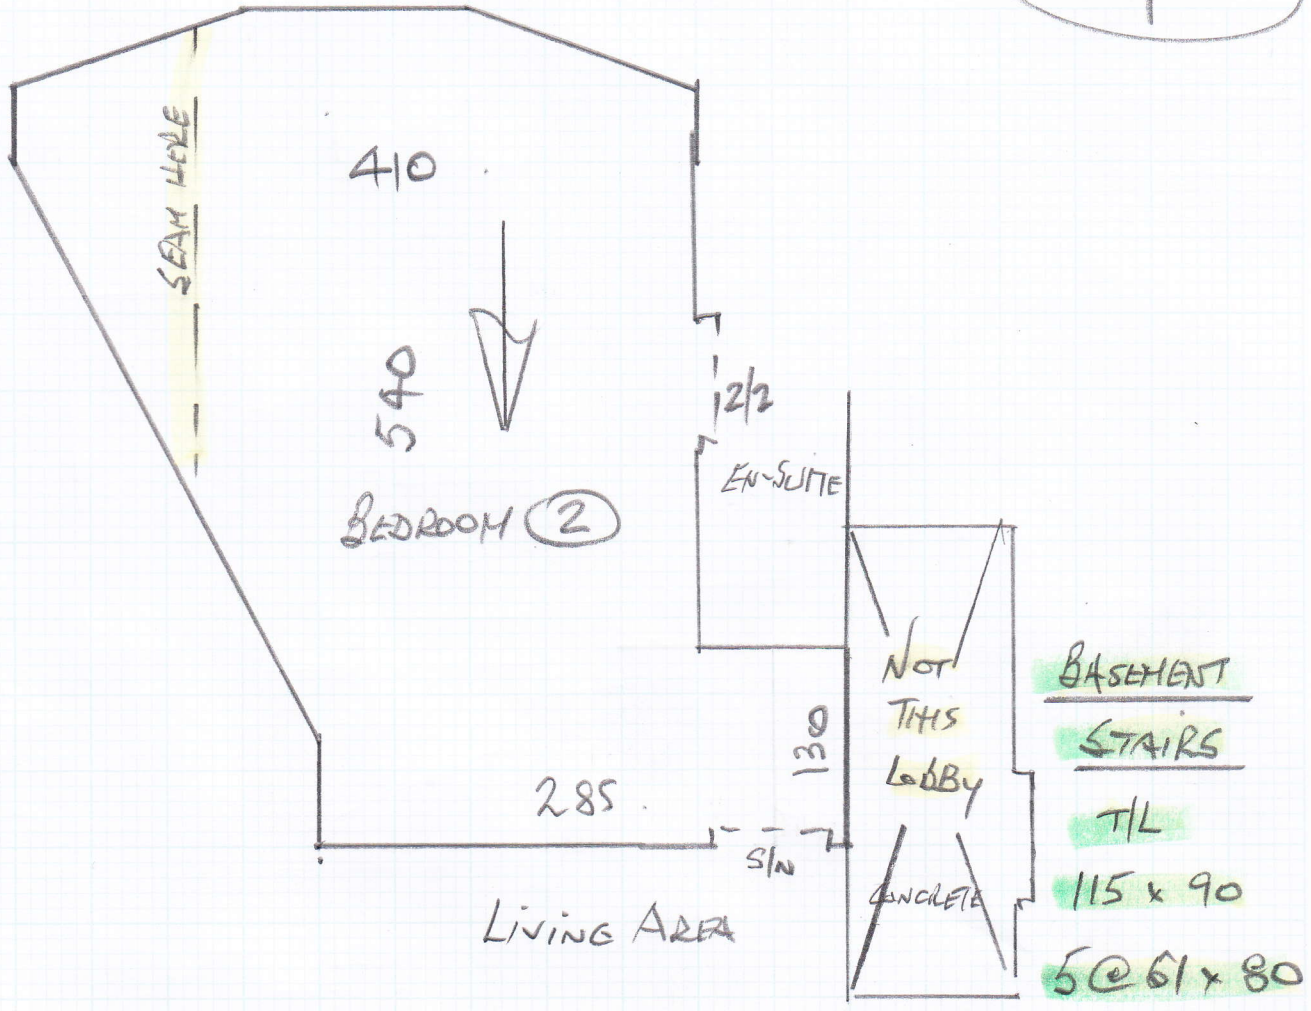 SEAM HERE
410
540
2/2
EN-SUITE
BEDROOM 2
NOT
THIS
LOBBY
130
285
S/N
CONCRETE
LIVING AREA
BASEMENT
STAIRS
T/L
115 x 90
5 @ 61 x 80